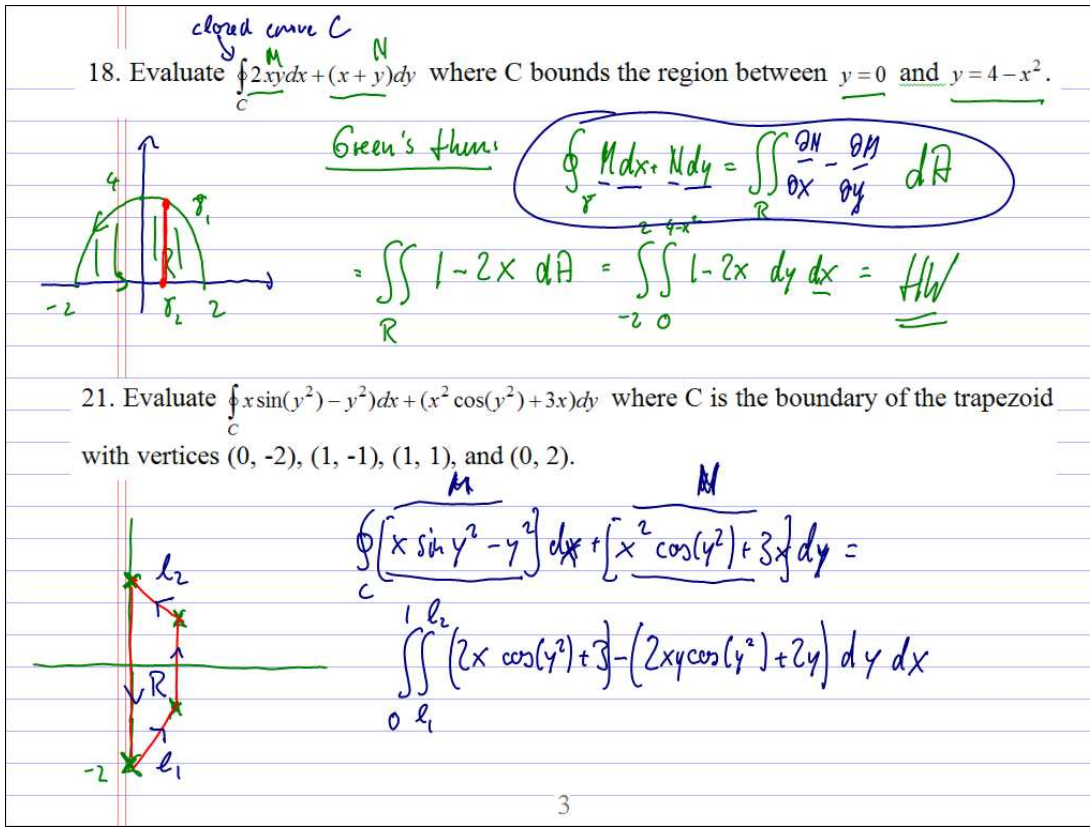 closed curve C
M N
18. Evaluate ∮_C 2xydx + (x + y)dy where C bounds the region between y = 0 and y = 4 − x².
Green's thm: ∮_γ Mdx + Ndy = ∬_R ∂N/∂x − ∂M/∂y dA
4 γ₁
= ∬_R 1 − 2x dA = ∫_{-2}^{2} ∫_0^{4-x²} 1 − 2x dy dx = HW
-2 γ₂ 2
21. Evaluate ∮_C x sin(y²) − y²)dx + (x² cos(y²) + 3x)dy where C is the boundary of the trapezoid
with vertices (0, -2), (1, -1), (1, 1), and (0, 2).
M N
∮_C [x sin y² − y²] dx + [x² cos(y²) + 3x] dy =
l₂
∫_0^1 ∫_{l₁}^{l₂} (2x cos(y²) + 3) − (2xy cos(y²) + 2y) dy dx
R
-2 l₁
3